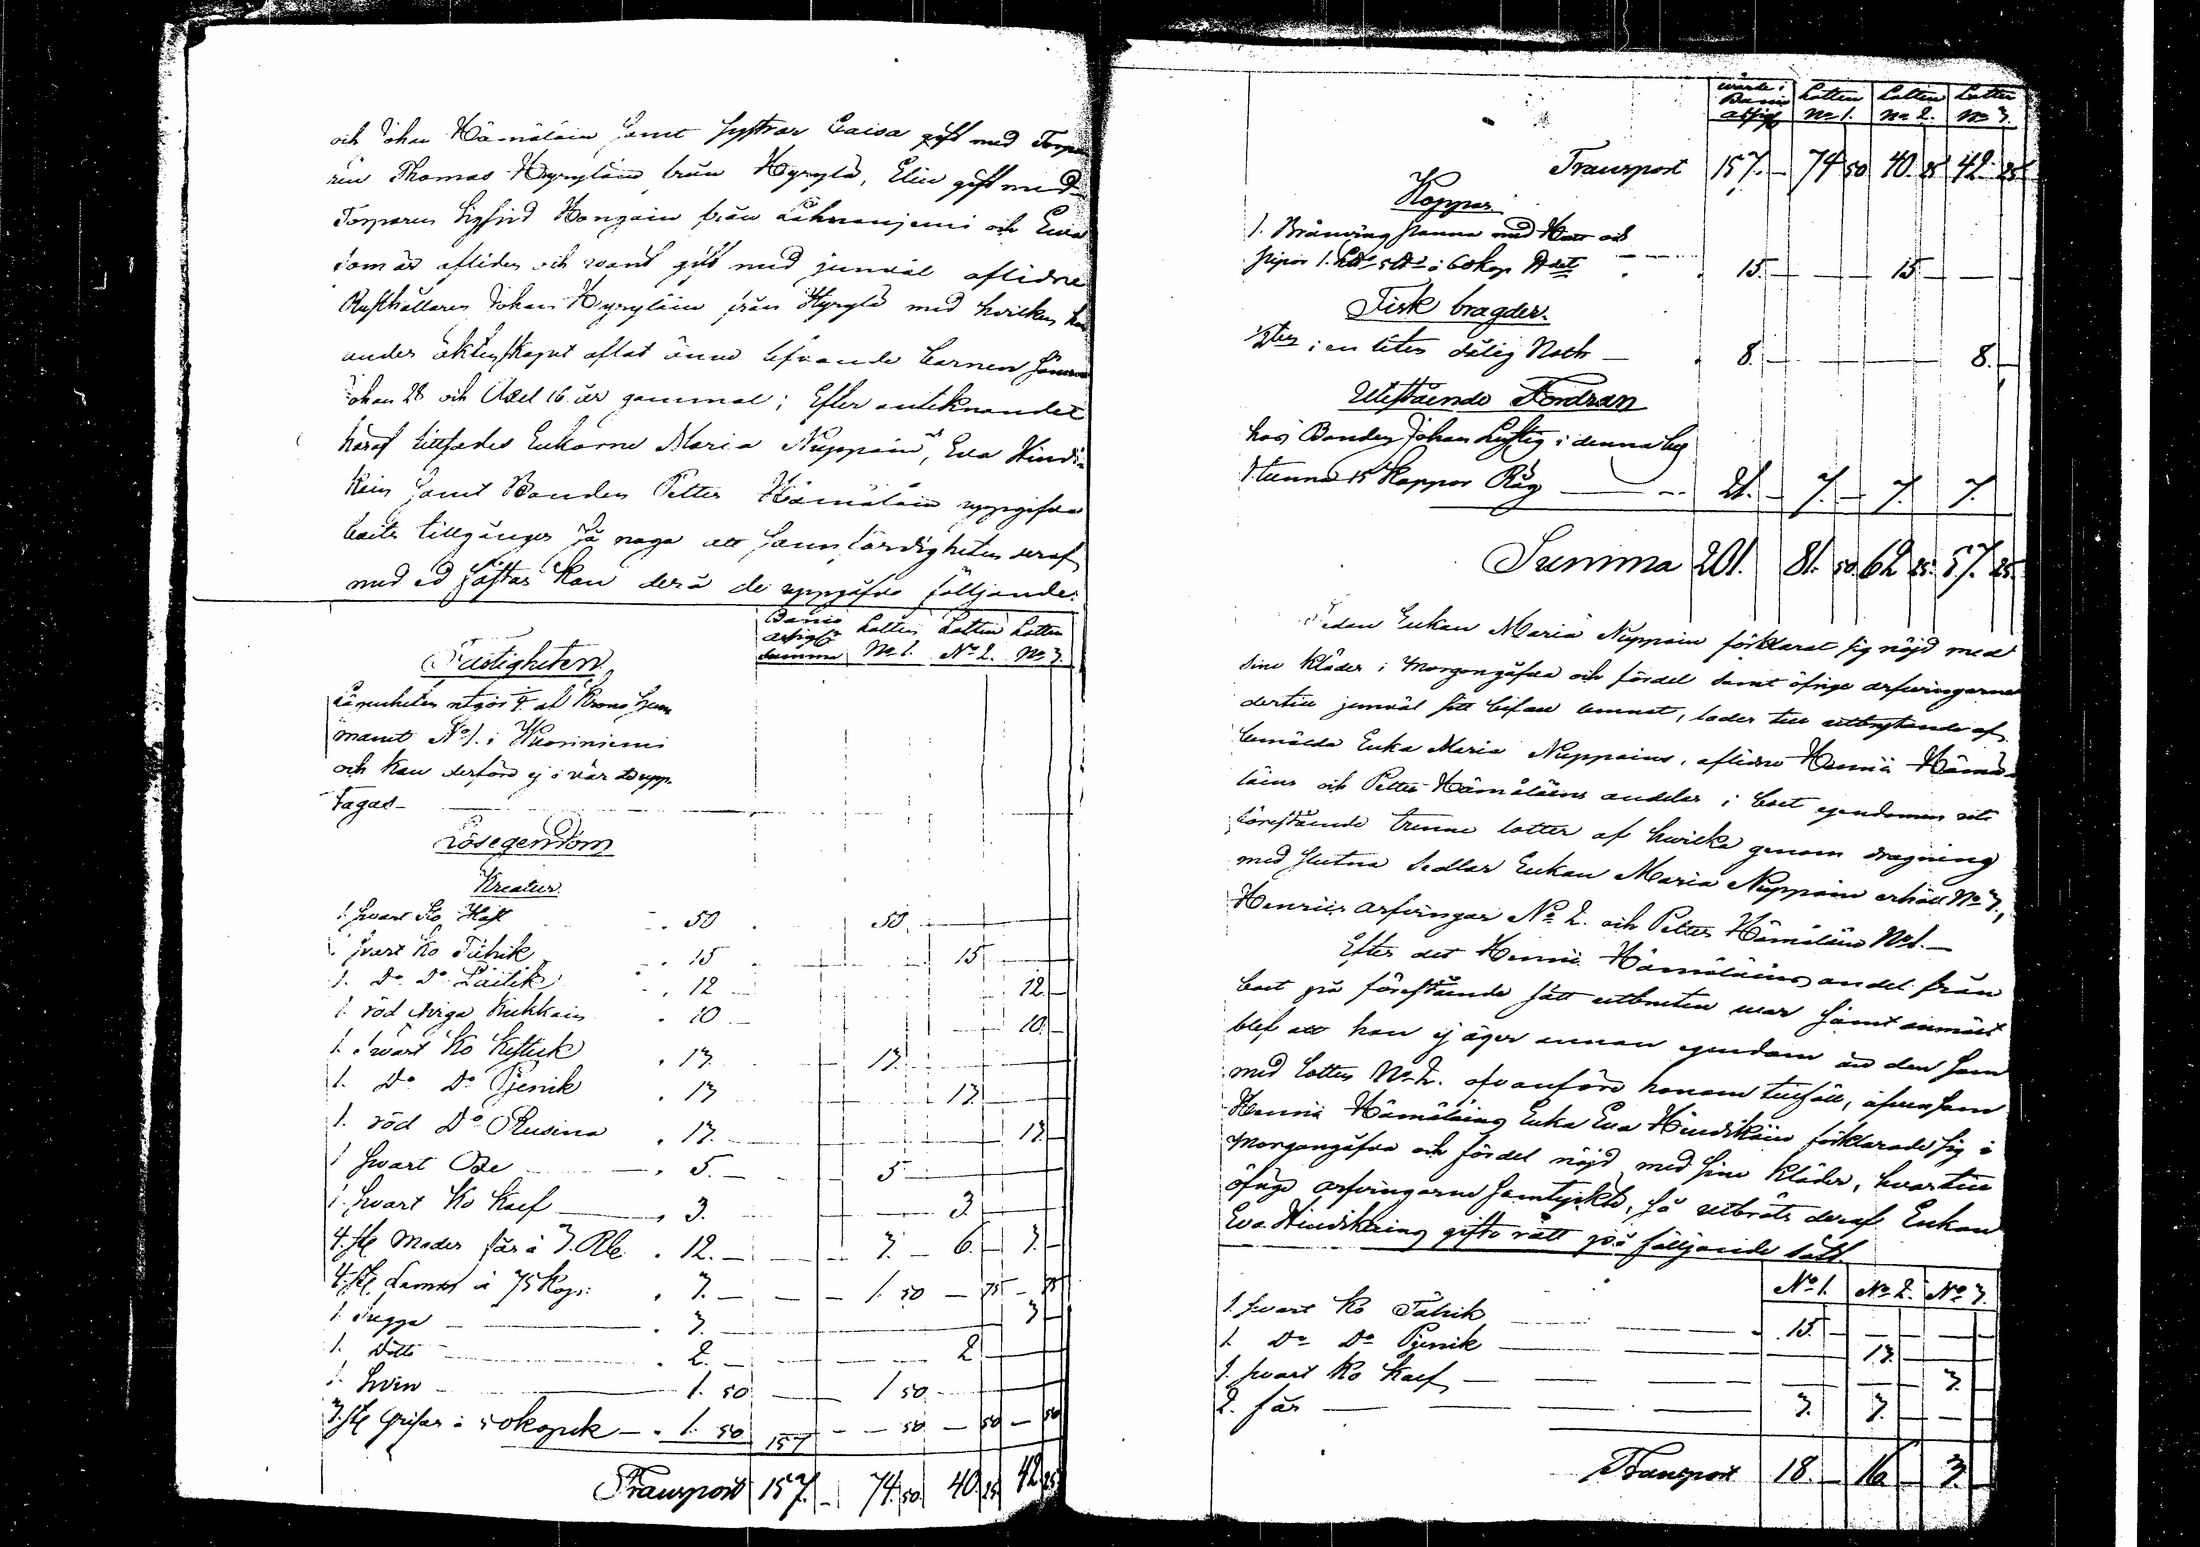 och Johan Hämäläin samt systrar Caisa gift med Torpa
ren Thomas Hyryläin från Hyrylä, Elin gift med
Torparen Sigfrid Hongain från Lähnaniemi och Eva
som är afliden och warit gift med jemväl aflidne
Rusthållaren Johan Hyryläin från Hyrylä med hvilken hon
under äktenskapet aflat ännu lefvande barnen
Johan 28 och Axel 16 år gammal; Efter antecknandet
häraf tillsades Enkorne Maria Nuppoin, Eva Hindi
käin samt Bonden Petter Hämäläin uppgifva
boets tillgångar så noga att sannfärdigheten deraf
med ed fästas kan derå de uppgåfvo följande:
Boets
Lotten Lotten Lotten
Summa No 1. No 2. No 3.
Fastigheten
Lägenheten utgör af Krono hem
manet No 1. i Kuosiniemi
och kan derföre ej i värde upp
tagas
Lösegendom
Kreatur
1. svart Häst 50 50
1. svart Ko Tähik 15 15
1. Do Do Läitik 12 12
1. röd Qviga Kukkain 10 10
1. svart Ko Kestick 13 13
1. Do Do Pjenik 13 13
1. röd Do Rusina 13 13
1 svart Oxe 5 5
1 svart Ko Kalf 3. 3
4. st Moder får à 3. Rbl 12. 3. 6. 3.
4. st Lamm à 75 Kop: 3. 1. 50 75 75
1 Sugga 3. 3
1. Ditto 2. 2
1. Svin 1. 50 1 50
3. st Grisar à 50 kopek 1. 50 157 50 50 50
Transport 157. 74. 50. 40. 25. 42. 25
värde i Boets Lotten Lotten Lotten
No 1. No 2. No 3.
Transport 157. 74 50 40. 25 42. 25
Koppar
1. Brännvins panna med Hatt och
pipor 1. à 60 kop 15. 15
Fisk bragder.
i en liten dålig Noth 8. 8.
Utestående Fordran
hos Bonden Johan Lustig i denna by
1 tunna 15 Kappor Råg 21. 7. 7. 7.
Summa 201. 81. 50. 62 25. 57. 25.
Sedan Enkan Maria Nuppoin förklarat sig nöjd med
sine kläder i Morgongåfva och fördel samt öfrige arfvingarne
dertill jemväl sitt bifall lemnat, lades till utbrytande af
bemälda Enka Maria Nuppoins, aflidne Henric Hämä
läins och Petter Hämäläins andelar i boet egendomen uti
förestående trenne lotter af hvilka genom dragning
med slutna sedlar Enkan Maria Nuppoin erhöll No 3.,
Henrics arfvingar No 2. och Petter Hämäläin No 1.
Efter det Henric Hämäläins andel från
boet på förestående sätt utbruten war samt anmält
blef att han ej äger annan egendom än den som
med Lotten No 2. ofvanföre honom tillföll, äfvensom
Henric Hämäläins Enka Eva Hindikäin förklarade sig i
Morgongåfva och fördel nöjd med sine kläder, hvartill
öfrige arfvingarne samtyckte, så utbröts deraf Enkan
Eva Hindikäins giftorätt på följande sätt.
No 1. No 2. No 3.
1. svart Ko Tähik 15.
1. Do Do Pjenik 13.
1. svart Ko Kalf 3.
2. får 3. 3.
Transport 18. 16. 3.